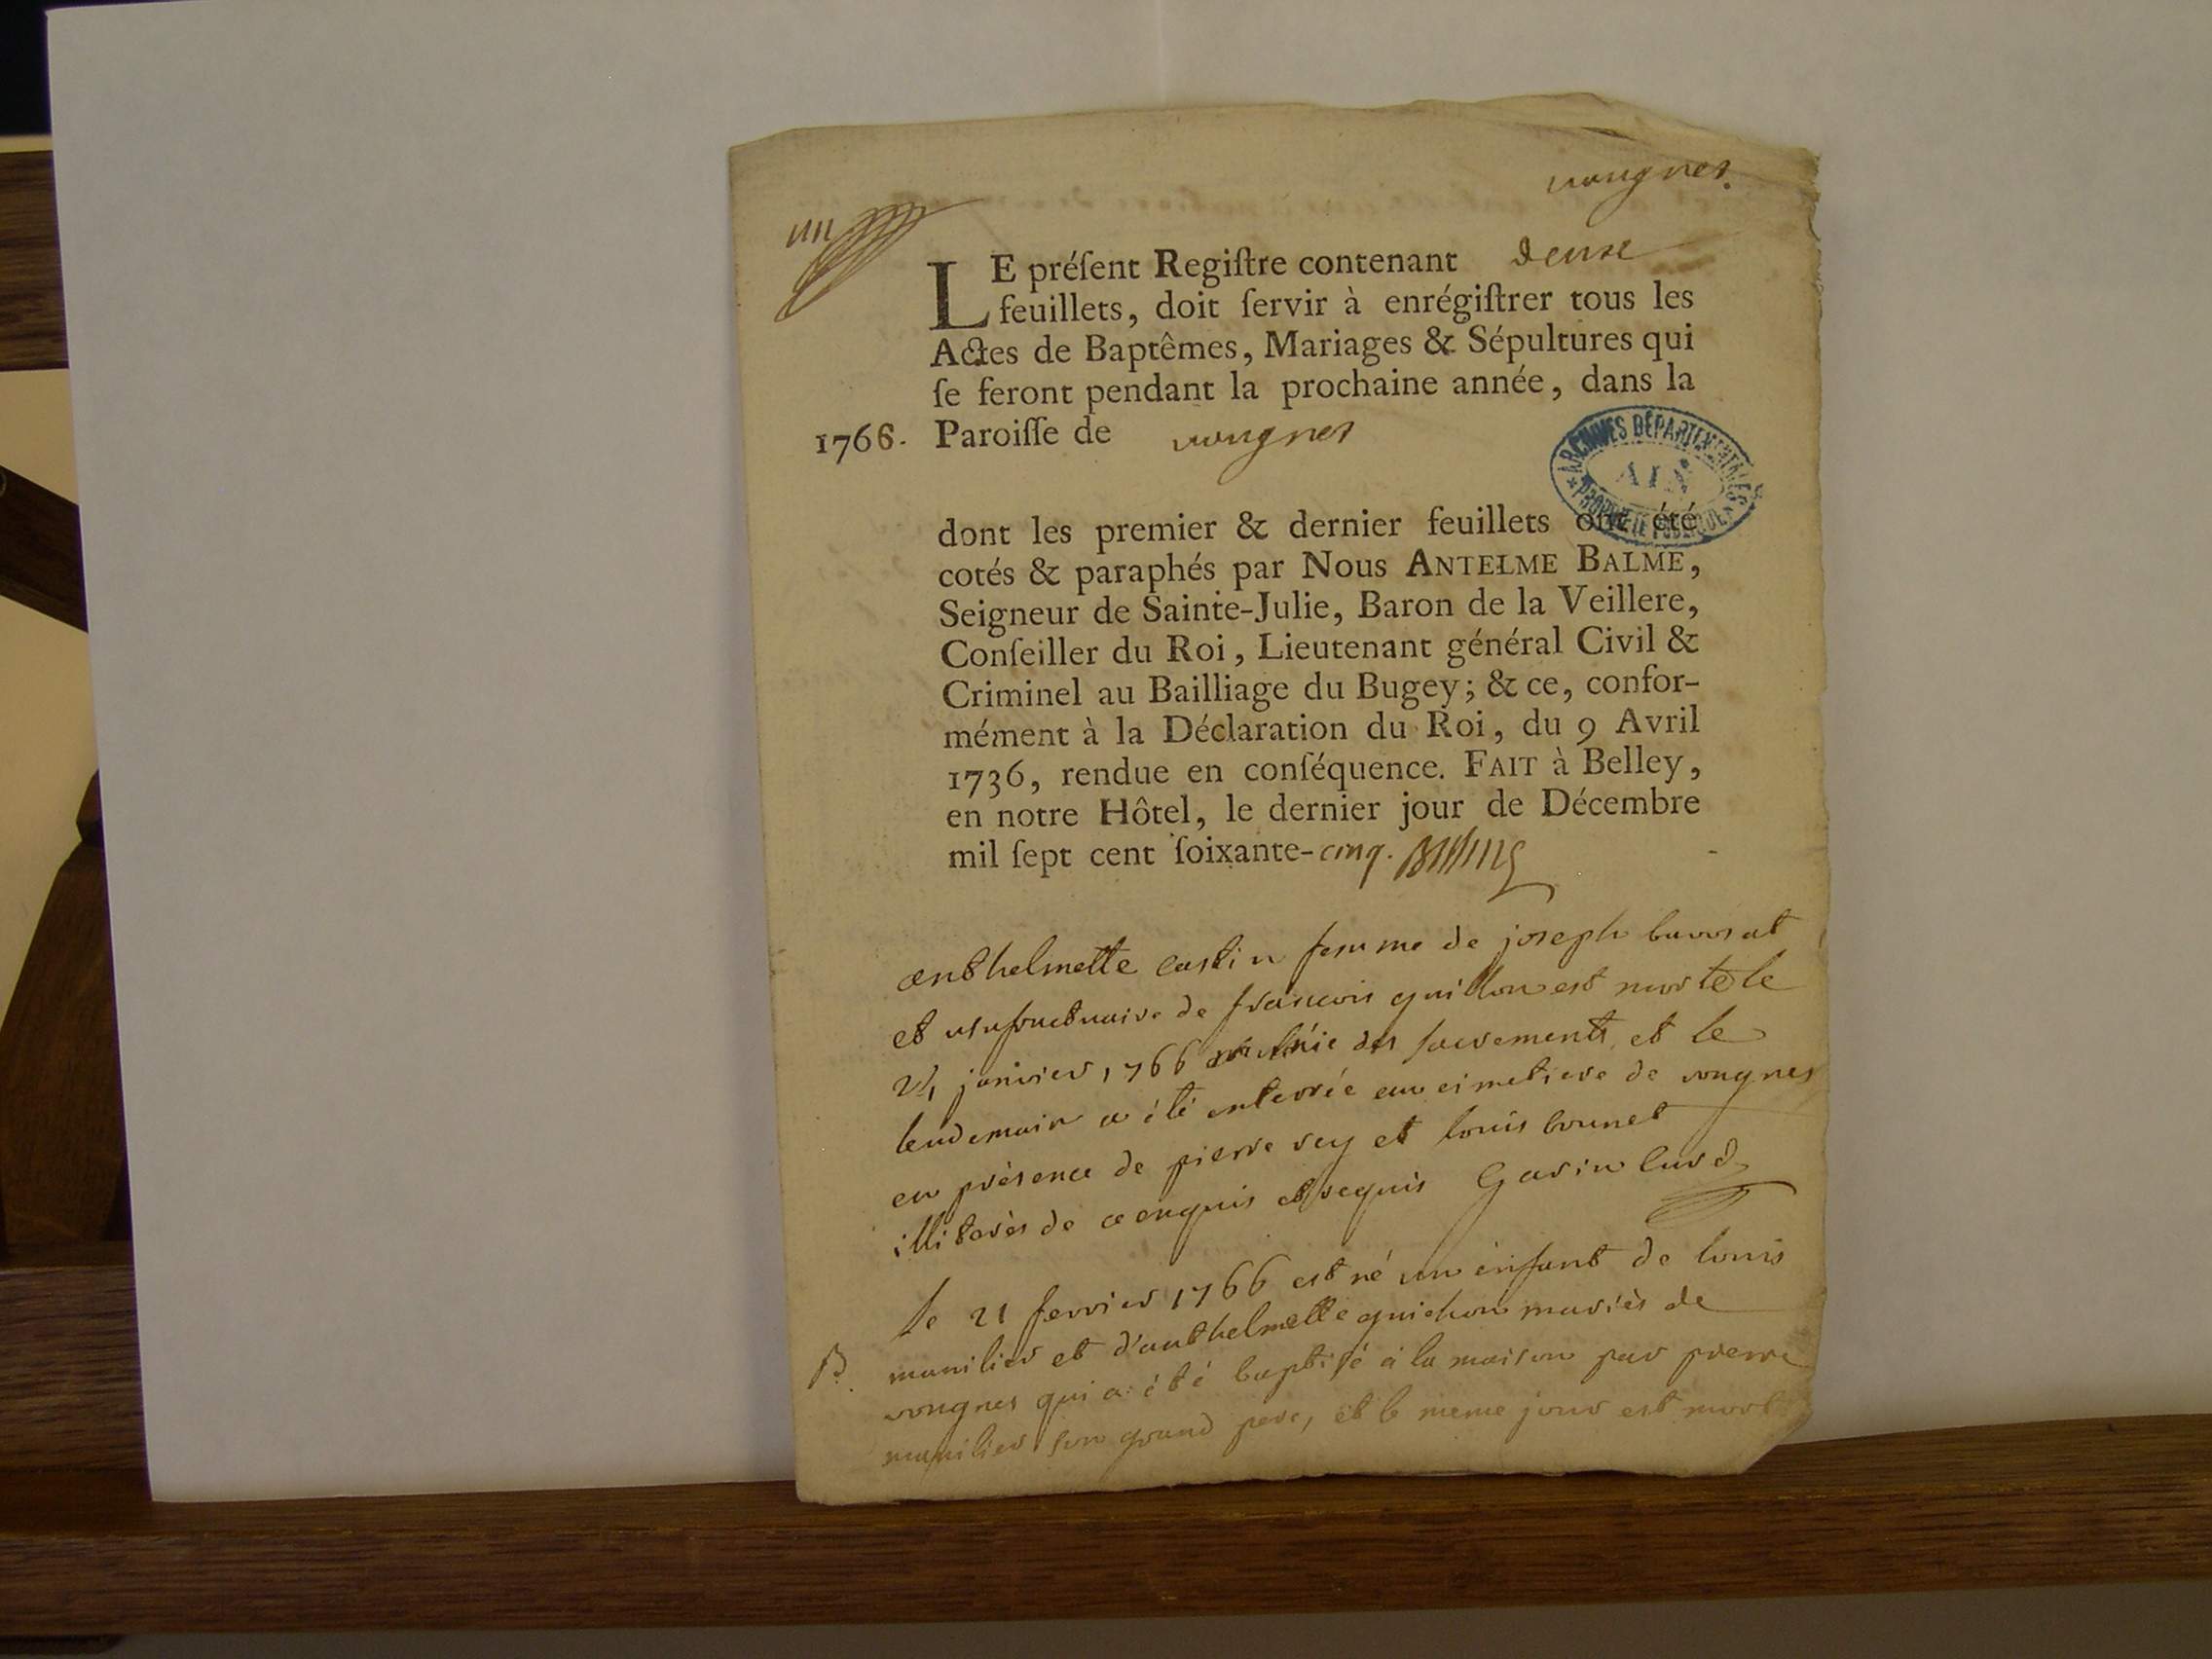 vongnes.
un
LE préſent Regiſtre contenant deux
feuillets, doit ſervir à enrégiſtrer tous les
Actes de Baptêmes, Mariages & Sépultures qui
ſe feront pendant la prochaine année, dans la
1766. Paroiſſe de vongnes
ARCHIVES DÉPARTEMENTALES
AIN
PROPRIÉTÉ PUBLIQUE
dont les premier & dernier feuillets ont été
cotés & paraphés par Nous ANTELME BALME,
Seigneur de Sainte-Julie, Baron de la Veillere,
Conſeiller du Roi, Lieutenant général Civil &
Criminel au Bailliage du Bugey; & ce, confor-
mément à la Déclaration du Roi, du 9 Avril
1736, rendue en conſéquence. FAIT à Belley,
en notre Hôtel, le dernier jour de Décembre
mil ſept cent ſoixante-cinq.
anthelmette castin femme de joseph
et usufructuaire de francois guillon est morte le
janvier 1766 des sacrements et le
lendemain a été enterrée au cimetiere de vongnes
en présence de pierre rey et louis brunet
illitérés de ce enquis et requis Garin curé
le 21 fevrier 1766 est né un enfant de louis
B. munilier et d'anthelmette guichon mariés de
vongnes qui a été baptisé à la maison par pierre
munilier son grand pere, et le meme jour est mort